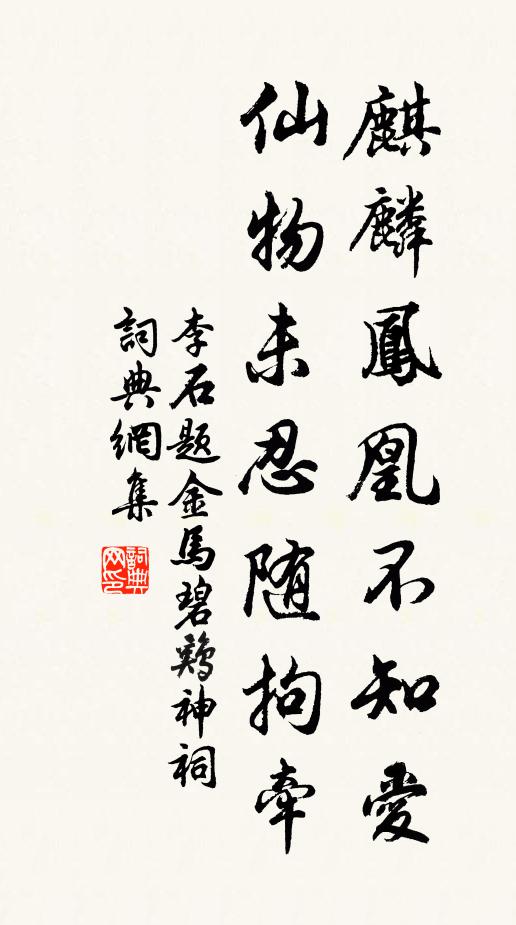 麒麟鳳凰不知愛
仙物未忍随拘牽
李石题金馬碧鷄神祠
詞典網集
詞典网印